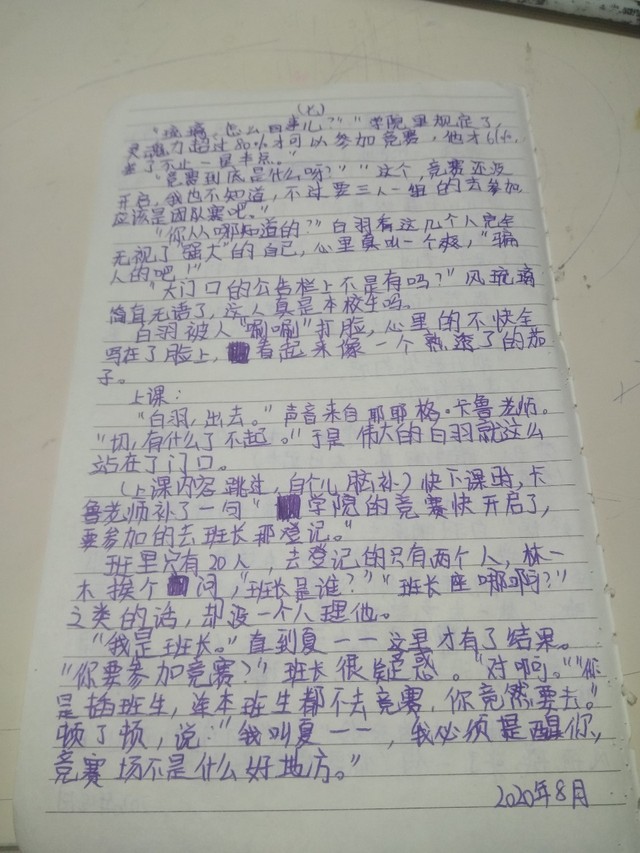 (七)
“琉璃，怎么回事儿？”“学院里规定了，
灵魂力超过80%才可以参加竞赛，他才61%，
差了不止一星半点。”
“竞赛到底是什么呀？”“这个，竞赛还没
开启，我也不知道，不过要三人一组的去参加
应该是团队赛吧。”
“你从哪知道的？”白羽看这几个人完全
无视了“强大”的自己，心里真叫一个爽，“骗
人的吧！”
“大门口的公告栏上不是有吗？”风琉璃
简直无语了，这人真是本校生吗。
白羽被人“唰唰”打脸，心里的不快全
写在了脸上，看起来像一个熟透了的茄
子。
上课：
“白羽，出去。”声音来自耶耶格·卡鲁老师。
“切，有什么了不起。”于是伟大的白羽就这么
站在了门口。
（上课内容跳过，自个儿脑补）快下课时，卡
鲁老师补了一句“学院的竞赛快开启了，
要参加的去班长那登记。”
班里只有20人，去登记的只有两个人，林一
木挨个问，“班长是谁？”“班长座哪啊？”
之类的话，却没一个人理他。
“我是班长。”直到夏一一这里才有了结果。
“你要参加竞赛？”班长很疑惑。“对啊。”“你
是插班生，连本班生都不去竞赛，你竟然要去。”
顿了顿，说：“我叫夏一一，我必须提醒你，
竞赛场不是什么好地方。”
2020年8月